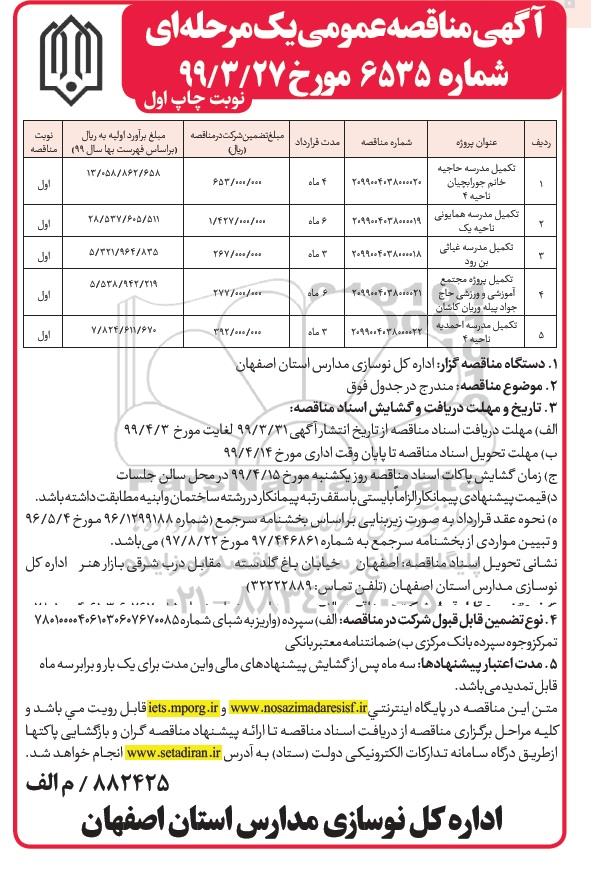 آگهی مناقصه عمومی یک مرحله‌ای
شماره ۶۵۳۵ مورخ ۹۹/۳/۲۷
نوبت چاپ اول
ردیف عنوان پروژه شماره مناقصه مدت قرارداد مبلغ تضمین شرکت در مناقصه (ریال) مبلغ برآورد اولیه به ریال (براساس فهرست بها سال ۹۹) نوبت مناقصه
۱ تکمیل مدرسه حاجیه خانم جورابچیان ناحیه ۴ ۲۰۹۹۰۰۴۰۳۸۰۰۰۰۲۰ ۴ ماه ۶۵۳/۰۰۰/۰۰۰ ۱۳/۰۵۸/۸۶۲/۶۵۸ اول
۲ تکمیل مدرسه همایونی ناحیه یک ۲۰۹۹۰۰۴۰۳۸۰۰۰۰۱۹ ۶ ماه ۱/۴۲۷/۰۰۰/۰۰۰ ۲۸/۵۳۷/۶۰۵/۵۱۱ اول
۳ تکمیل مدرسه غیاثی بن رود ۲۰۹۹۰۰۴۰۳۸۰۰۰۰۱۸ ۳ ماه ۲۶۷/۰۰۰/۰۰۰ ۵/۳۲۱/۹۶۴/۸۳۵ اول
۴ تکمیل پروژه مجتمع آموزشی و ورزشی حاج جواد پیله وریان کاشان ۲۰۹۹۰۰۴۰۳۸۰۰۰۰۲۱ ۶ ماه ۲۷۷/۰۰۰/۰۰۰ ۵/۵۳۸/۹۴۲/۲۱۹ اول
۵ تکمیل مدرسه احمدیه ناحیه ۴ ۲۰۹۹۰۰۴۰۳۸۰۰۰۰۲۲ ۳ ماه ۳۹۲/۰۰۰/۰۰۰ ۷/۸۲۴/۶۱۱/۶۷۰ اول
۱. دستگاه مناقصه گزار: اداره کل نوسازی مدارس استان اصفهان
۲. موضوع مناقصه: مندرج در جدول فوق
۳. تاریخ و مهلت دریافت و گشایش اسناد مناقصه:
الف) مهلت دریافت اسناد مناقصه از تاریخ انتشار آگهی ۹۹/۳/۳۱ لغایت مورخ ۹۹/۴/۳
ب) مهلت تحویل اسناد مناقصه تا پایان وقت اداری مورخ ۹۹/۴/۱۴
ج) زمان گشایش پاکات اسناد مناقصه روز یکشنبه مورخ ۹۹/۴/۱۵ در محل سالن جلسات
د) قیمت پیشنهادی پیمانکار الزاماً بایستی با سقف رتبه پیمانکار در رشته ساختمان و ابنیه مطابقت داشته باشد.
ه) نحوه عقد قرارداد به صورت زیربنایی بر اساس بخشنامه سرجمع (شماره ۹۶/۱۲۹۹۱۸۸ مورخ ۹۶/۵/۴
و تبیین مواردی از بخشنامه سرجمع به شماره ۹۷/۴۴۶۸۶۱ مورخ ۹۷/۸/۲۲) می‌باشد.
نشانی تحویل اسناد مناقصه: اصفهان خیابان باغ گلدسته مقابل درب شرقی بازار هنر اداره کل
نوسازی مدارس استان اصفهان (تلفن تماس: ۳۲۲۲۲۸۸۹)
۴. نوع تضمین قابل قبول شرکت در مناقصه: الف) سپرده (واریز به شبای شماره ۷۸۰۱۰۰۰۰۴۰۶۱۰۳۰۶۰۷۶۷۰۰۸۵
تمرکز وجوه سپرده بانک مرکزی ب) ضمانتنامه معتبر بانکی
۵. مدت اعتبار پیشنهادها: سه ماه پس از گشایش پیشنهادهای مالی و این مدت برای یک بار و برابر سه ماه
قابل تمدید می‌باشد.
متن این مناقصه در پایگاه اینترنتی www.nosazimadaresisf.ir و iets.mporg.ir قابل رویت می باشد و
کلیه مراحل برگزاری مناقصه از دریافت اسناد مناقصه تا ارائه پیشنهاد مناقصه گران و بازگشایی پاکتها
ازطریق درگاه سامانه تدارکات الکترونیکی دولت (ستاد) به آدرس www.setadiran.ir انجام خواهد شد.
۸۸۲۴۲۵ / م الف
اداره کل نوسازی مدارس استان اصفهان